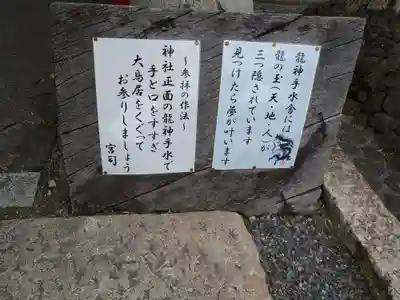 龍神手水舎には
龍の玉(天・地・人)が
三つ隠されています
見つけたら夢が叶います
～参拝の作法～
神社正面の龍神手水で
手と口をすすぎ
大鳥居をくぐって
お参りしましょう
宮司